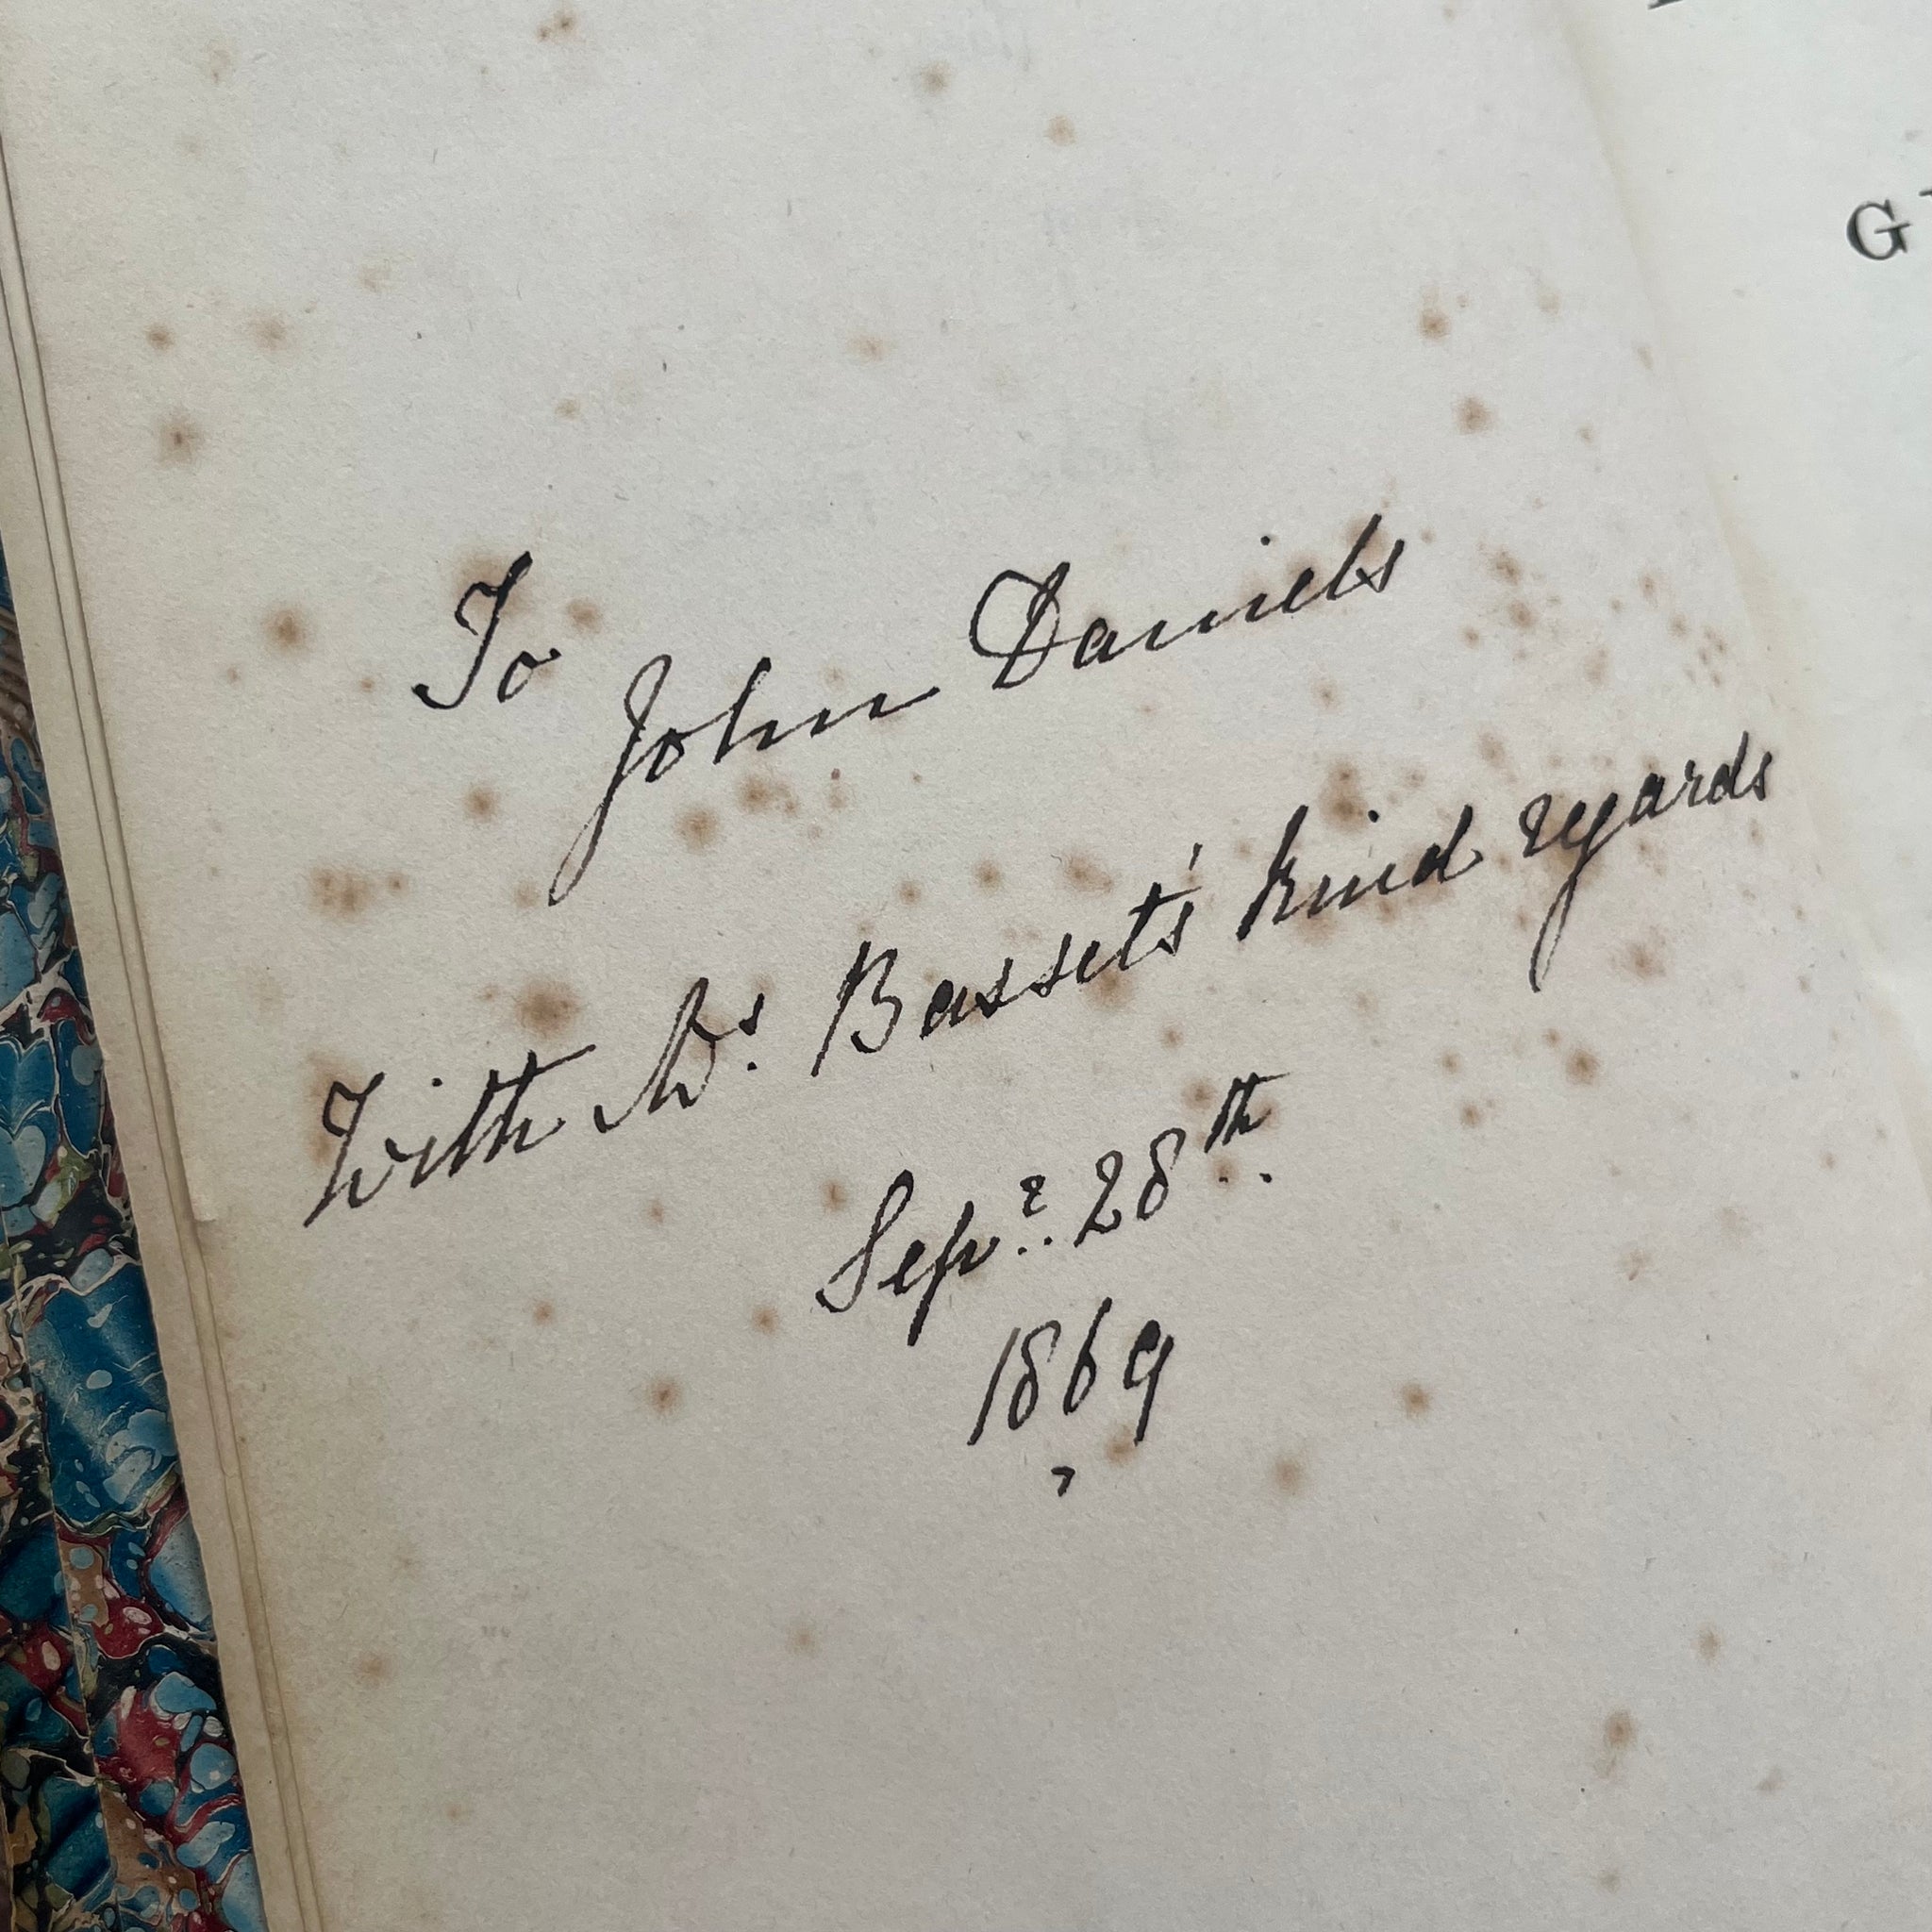 To John Daniels
With Mrs. Basset's kind regards
Sepr. 28th.
1869
G